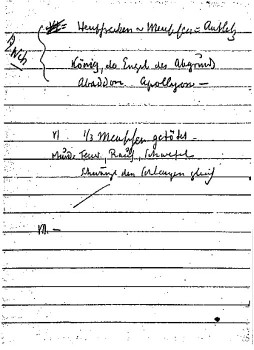 Heuschrecken ~ Menschen-Antlitz
2 Weh
König, der Engel des Abgrunds
Abaddon Apollyon —
VI 1/3 Menschen getötet —
Feuer, Rauch, Schwefel
Schwänze den Schlangen gleich
VII. —